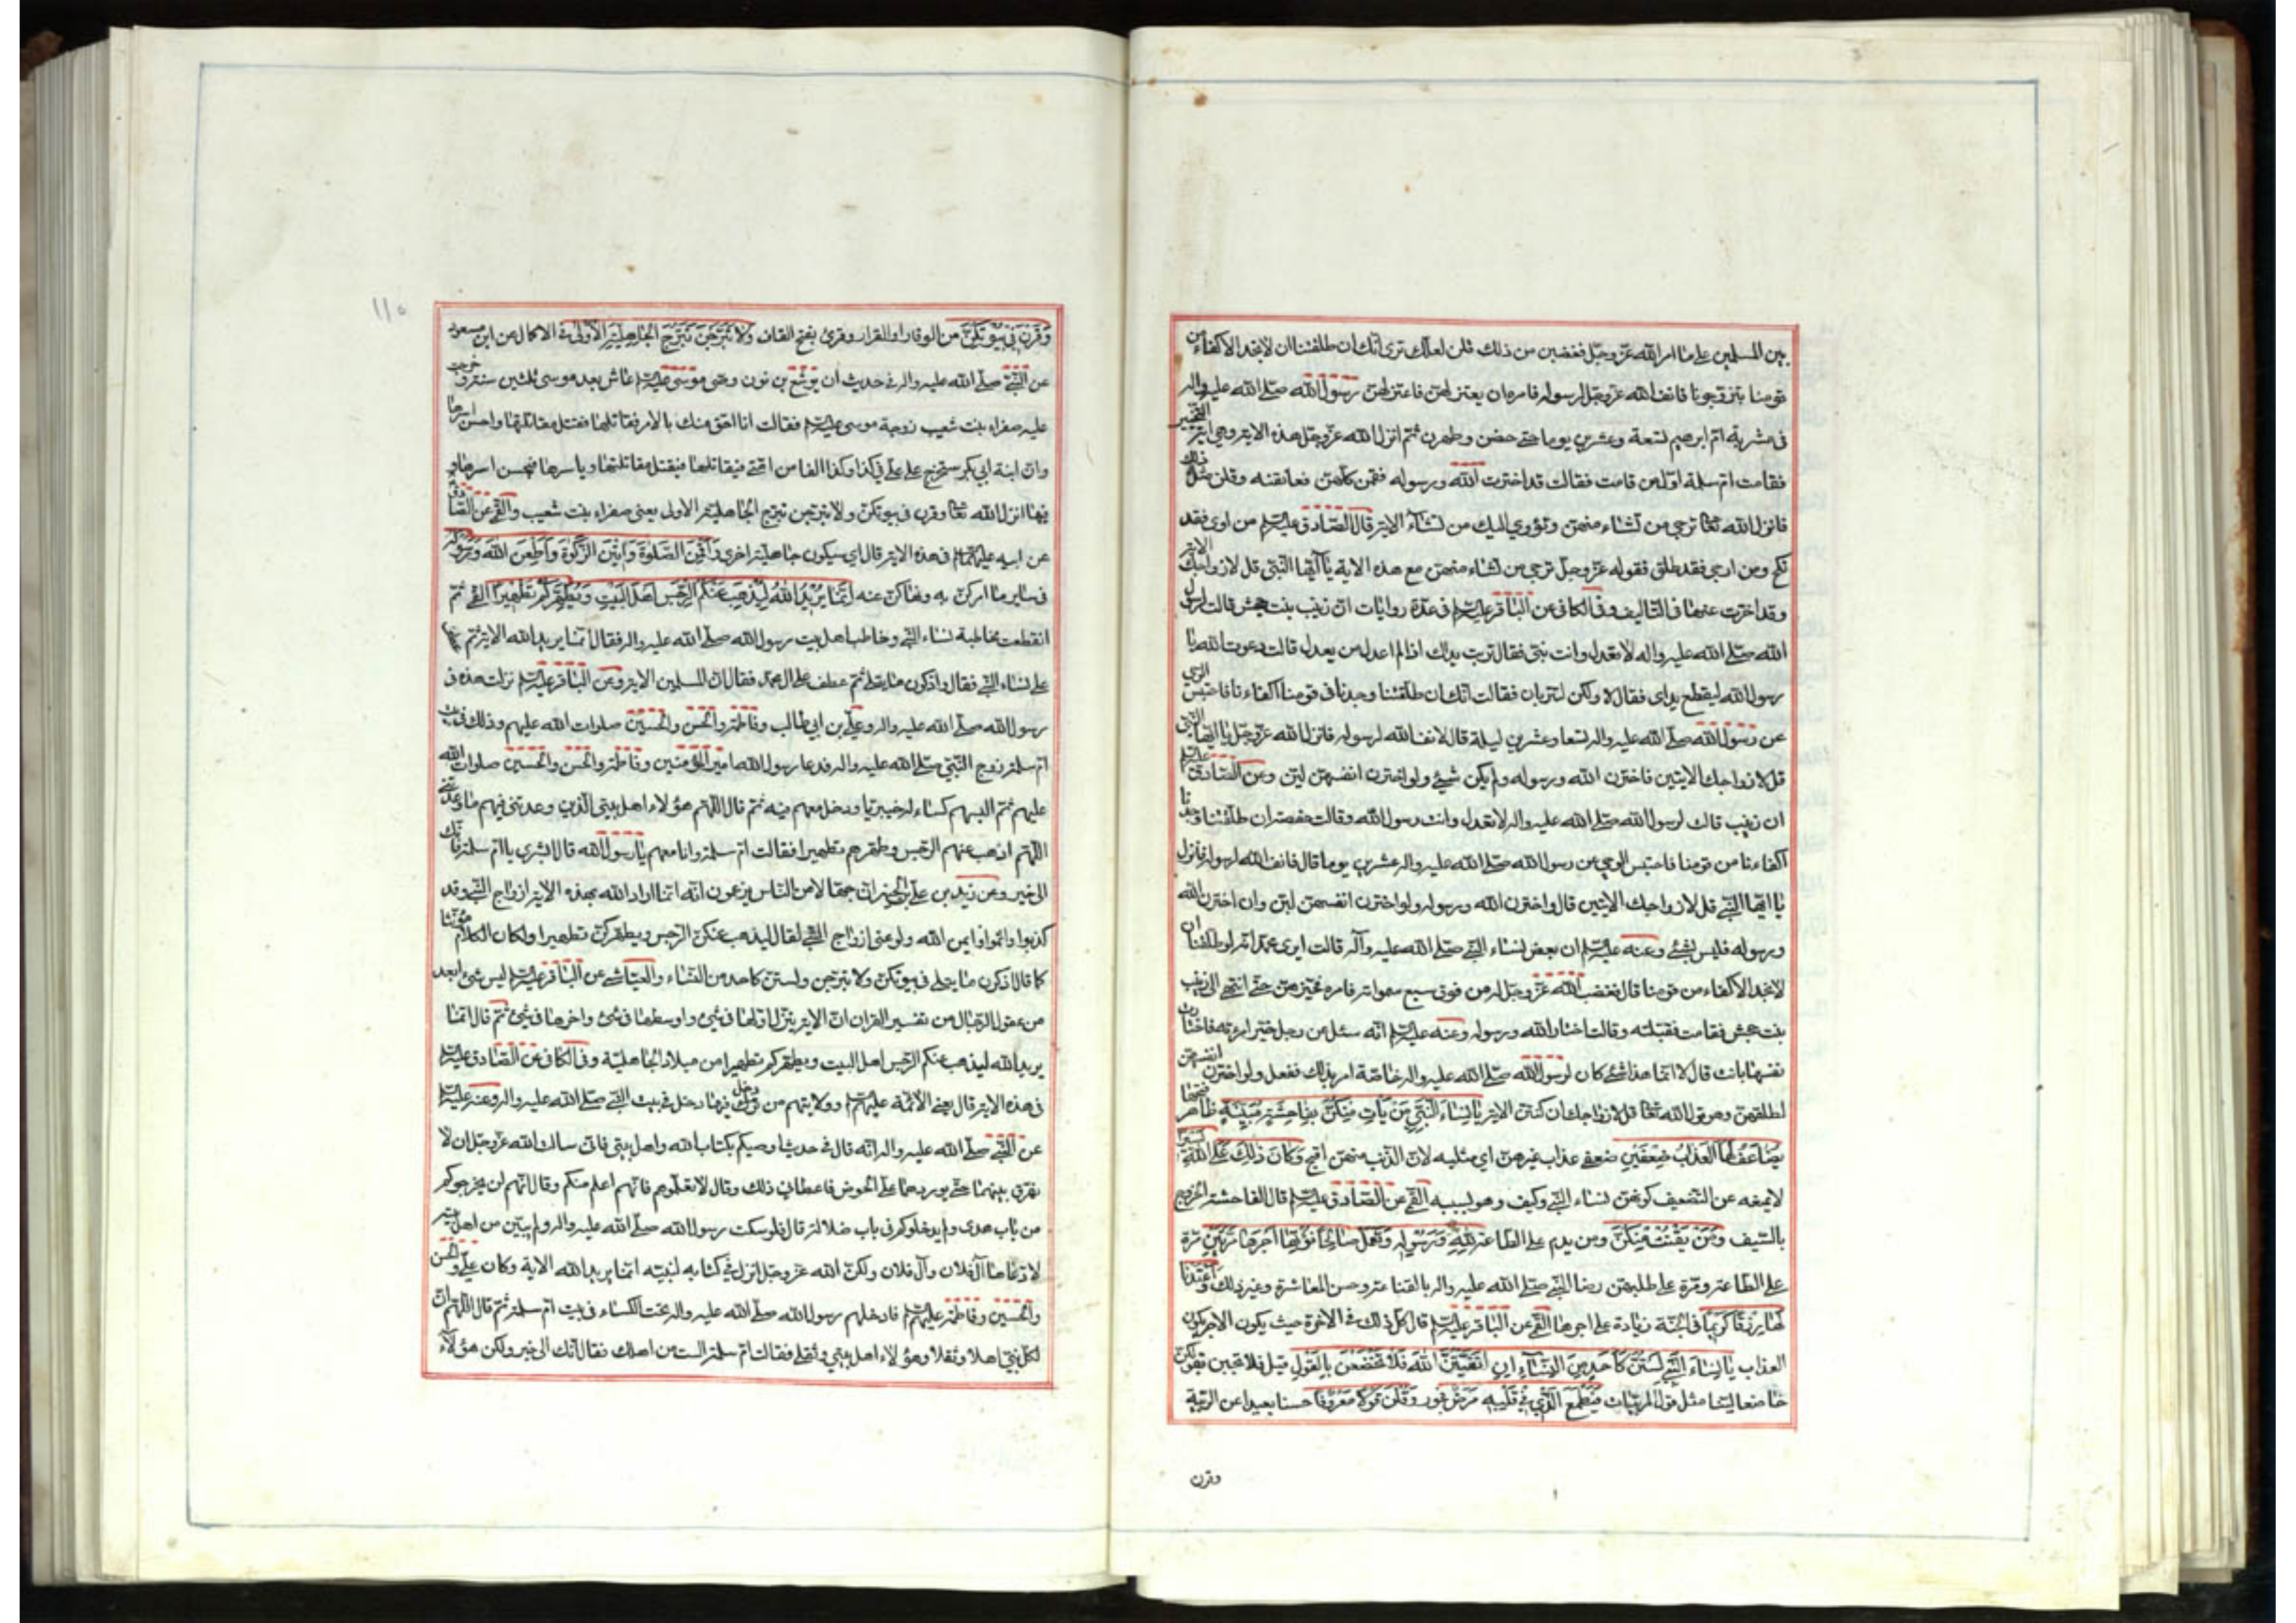 بين المسلمين على ما امر الله عزّ وجلّ فغضبن من ذلك قلن لعلّك ترى انّك ان طلقتنا ان لا نجد الاكفاء من
قومنا يتزوّجونا فانف الله عزّ وجلّ لرسوله فامره ان يعتزلهنّ فاعتزلهنّ رسول الله صلّى الله عليه واله
فى مشربة امّ ابرهيم تسعة وعشرين يوما حتى حضن وطهرن ثمّ انزل الله عزّ وجلّ هذه الاية وهي اية التخيير
فقامت امّ سلمة اوّل من قامت فقالت قد اخترت الله ورسوله فقمن كلّهنّ فعانقنه وقلن مثل ذلك
فانزل الله تعا ترجي من تشاء منهنّ وتؤوي اليك من تشآء الاية قال الصّادق عليه السلم من اوى فقد
نكح ومن ارجى فقد طلق فقوله عزّ وجلّ ترجي من تشاء منهنّ مع هذه الاية يا آيّها النّبيّ قل لازواجك الاية
وقد اخّرت عنها فى التّاليف وفى الكافى عن الباقر عليه السلم فى عدّة روايات انّ زينب بنت جحش قالت لرسول
الله صلّى الله عليه واله لا تعدل وانت نبيّ فقال تربت يداك اذا لم اعدل من يعدل قالت دعوت الله يا
رسول الله ليقطع يداى فقال لا ولكن لتتربان فقالت انّك ان طلّقتنا وجدنا فى قومنا اكفاءنا فاحتبس الوحي
عن رسول الله صلّى الله عليه واله تسعا وعشرين ليلة قال فانف الله لرسوله فانزل الله عزّ وجلّ يا ايّها النّبيّ
قل لازواجك الايتين فاخترن الله ورسوله ولم يكن شيئ ولو اخترن انفسهنّ لبنّ وعن الصّادق عليه السلم
ان زينب قالت لرسول الله صلّى الله عليه واله لا تعدل وانت رسول الله وقالت حفصة ان طلّقتنا وجدنا
اكفاءنا من قومنا فاحتبس الوحي عن رسول الله صلّى الله عليه واله عشرين يوما قال فانف الله لرسوله فانزل
يا ايّها النّبيّ قل لازواجك الايتين قال فاخترن الله ورسوله ولو اخترن انفسهنّ لبنّ وان اخترن الله
ورسوله فليس بشئ وعنه عليه السلم ان بعض نساء النّبيّ صلّى الله عليه وآله قالت ايرى محمّد انّه لو طلّقنا ان
لا نجد الاكفاء من قومنا قال فغضب الله عزّ وجلّ له من فوق سبع سمواته فامره فخيّرهنّ حتّى انتهى الى زينب
بنت جحش فقامت فقبّلته وقالت اختار الله ورسوله وعنه عليه السلم انّه سئل عن رجل خيّر امرءته فاختارت
نفسها بانت قال لا انّما هذا شئ كان لرسول الله صلّى الله عليه واله خاصّة امر بذلك ففعل ولو اخترن انفسهنّ
لطلقهنّ وهو قول الله تعا قل لازواجك ان كنتنّ الاية يا نساء النّبيّ من يأت منكنّ بفاحشة مبيّنة ظاهر قبحها
يضاعف لها العذاب ضعفين ضعفى عذاب غيرهنّ اي مثليه لانّ الذّنب منهنّ اقبح وكان ذلك على الله يسيرا
لا يمنعه عن التّضعيف كونهنّ نساء النّبيّ وكيف وهو سببه القمّي عن الصّادق عليه السلم قال الفاحشة الخروج
بالسّيف ومن يقنت منكنّ ومن يدم على الطّاعة لله ورسوله وتعمل صالحا نؤتها اجرها مرّتين مرّة
على الطّاعة ومرّة على طلبهنّ رضا النّبيّ صلّى الله عليه واله بالقناعة وحسن المعاشرة وغير ذلك واعتدنا
لها رزقا كريما فى الجنّة زيادة على اجرها القمّي عن الباقر عليه السلم قال كلّ ذلك فى الاخرة حيث يكون الاجر يكون
العذاب يا نساء النّبيّ لستنّ كأحد من النّسآء ان اتّقيتنّ الله فلا تخضعن بالقول قيل فلا تجبن بقولكنّ
خاضعا ليّنا مثل قول المريبات فيطمع الّذي في قلبه مرض فجور وقلن قولا معروفا حسنا بعيدا عن الرّيبة
وقرن
١١٥
وقرن في بيوتكنّ من الوقار او القرار وقرئ بفتح القاف ولا تبرّجن تبرّج الجاهليّة الاولى فى الاكمال عن ابن مسعود
عن النّبيّ صلّى الله عليه واله فى حديث ان يوشع بن نون وصى موسى عليه السلم عاش بعد موسى ثلثين سنة وخرجت
عليه صفراء بنت شعيب زوجة موسى عليه السلم فقالت انا احقّ منك بالامر فقاتلها فقتل مقاتلتها واحسن اسرها
وانّ ابنة ابي بكر ستخرج على عليّ في كذا وكذا الفا من امّتي فيقاتلها فيقتل مقاتلتها وياسرها فيحسن اسرها و
فيها انزل الله تعا وقرن فى بيوتكنّ ولا تبرّجن تبرّج الجاهليّة الاولى يعنى صفراء بنت شعيب والقمّي عن الصّادق
عن ابيه عليهما السلم فى هذه الاية قال اي سيكون جاهليّة اخرى واقمن الصّلوة واتين الزّكوة واطعن الله ورسوله
فى ساير ما امركنّ به ونهاكنّ عنه انّما يريد الله ليذهب عنكم الرّجس اهل البيت ويطهّركم تطهيرا القمّي ثمّ
انقطعت مخاطبة نساء النّبيّ وخاطب اهل بيت رسول الله صلّى الله عليه واله فقال انّما يريد الله الاية ثمّ عطف
على نساء النّبيّ فقال واذكرن ما يتلى ثمّ عطف على ال محمّد فقال انّ المسلمين الاية وعن الباقر عليه السلم نزلت هذه فى
رسول الله صلّى الله عليه واله وعليّ بن ابي طالب وفاطمة والحسن والحسين صلوات الله عليهم وذلك فى بيت
امّ سلمة زوج النّبيّ صلّى الله عليه واله فدعا رسول الله امير المؤمنين وفاطمة والحسن والحسين صلوات الله
عليهم ثمّ البسهم كساء له خيبريّا ودخل معهم فيه ثمّ قال اللّهمّ هؤلاء اهل بيتي الّذين وعدتنى فيهم ما وعدتني
اللّهمّ اذهب عنهم الرّجس وطهّرهم تطهيرا فقالت امّ سلمة وانا معهم يا رسول الله قال ابشري يا امّ سلمة فانّك
الى خير وعن زيد بن عليّ بن الحسين انّ جهّالا من النّاس يزعمون انّه انّما اراد الله بهذه الاية ازواج النّبيّ وقد
كذبوا واثموا وايم الله ولو عنى ازواج النّبيّ لقال ليذهب عنكنّ الرّجس ويطهّركنّ تطهيرا ولكان الكلام مؤنّثا
كما قال اذكرن ما يتلى فى بيوتكنّ ولا تبرّجن ولستنّ كاحد من النّساء والعيّاشى عن الباقر عليه السلم ليس شئ ابعد
من عقول الرّجال من تفسير القران انّ الاية ينزل اوّلها فى شئ واوسطها فى شئ واخرها فى شئ ثمّ قال انّما
يريد الله ليذهب عنكم الرّجس اهل البيت ويطهّركم تطهيرا من ميلاد الجاهليّة وفى الكافى عن الصّادق عليه السلم
فى هذه الاية قال يعنى الائمّة عليهم السلم وولايتهم من دخل فيها دخل فى بيت النّبيّ صلّى الله عليه واله وعنه عليه السلم
عن النّبيّ صلّى الله عليه واله انّه قال فى حديث اوصيكم بكتاب الله واهل بيتى فانّى سالت الله عزّ وجلّ ان لا
يفرّق بينهما حتّى يوردهما على الحوض فاعطانى ذلك وقال لا تعلّموهم فانّهم اعلم منكم وقال انّهم لن يخرجوكم
من باب هدى ولم يدخلوكم فى باب ضلالة قال فلو سكت رسول الله صلّى الله عليه واله ولم يبيّن من اهل بيته
لادّعاها آل فلان وآل فلان ولكنّ الله عزّ وجلّ انزل في كتابه لنبيّه انّما يريد الله الاية وكان عليّ والحسن
والحسين وفاطمة عليهم السلم فادخلهم رسول الله صلّى الله عليه واله تحت الكساء فى بيت امّ سلمة ثمّ قال اللّهمّ انّ
لكلّ نبيّ اهلا وثقلا وهؤلاء اهل بيتي وثقلي فقالت امّ سلمة الست من اهلك فقال انّك الى خير ولكن هؤلآء